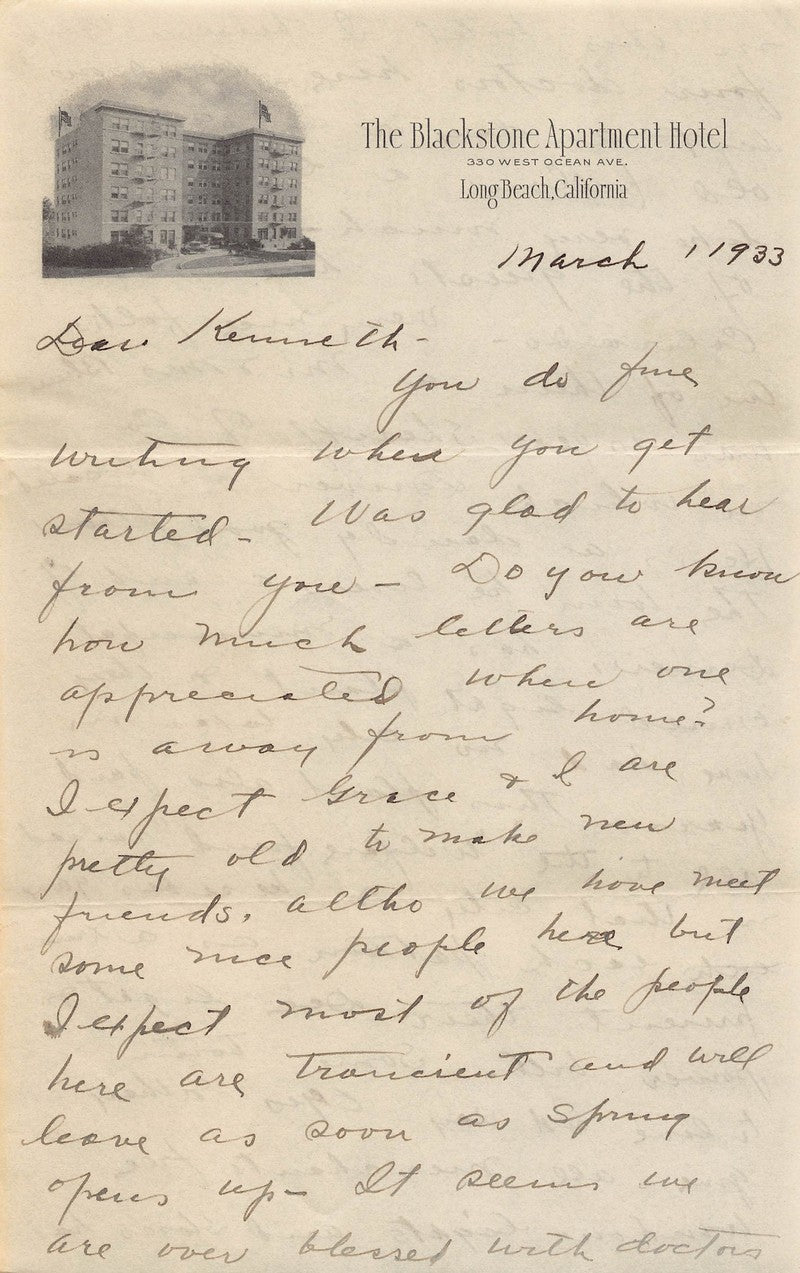 The Blackstone Apartment Hotel
330 WEST OCEAN AVE.
Long Beach, California
March 1 1933
Dear Kenneth -
You do fine
writing when you get
started - Was glad to hear
from you - Do you know
how much letters are
appreciated when one
is away from home?
I expect Grace & I are
pretty old to make new
friends. altho we have meet
some nice people here but
I expect most of the people
here are trancient and will
leave as soon as Spring
opens up - It seems we
are over blessed with doctors